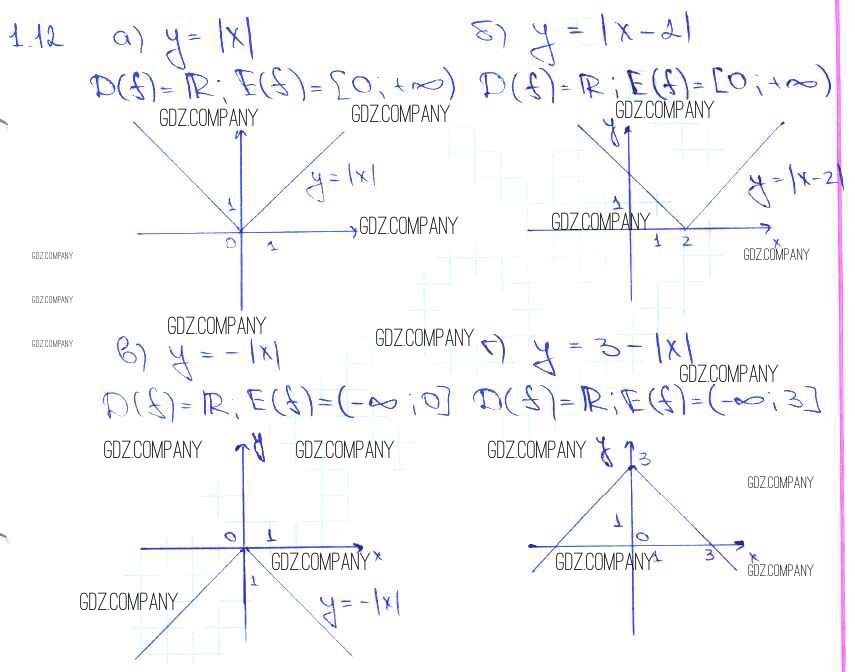 1.12 а) y = |x| б) y = |x-2|
D(f)=ℝ; E(f)=[0;+∞) D(f)=ℝ; E(f)=[0;+∞)
GDZ.COMPANY GDZ.COMPANY GDZ.COMPANY
y
y=|x| y=|x-2|
1 1
GDZ.COMPANY GDZ.COMPANY
0 1 1 2 x
GDZ.COMPANY GDZ.COMPANY
GDZ.COMPANY
GDZ.COMPANY
GDZ.COMPANY GDZ.COMPANY
в) y = -|x| г) y = 3-|x|
GDZ.COMPANY
D(f)=ℝ; E(f)=(-∞;0] D(f)=ℝ; E(f)=(-∞;3]
GDZ.COMPANY y GDZ.COMPANY GDZ.COMPANY y 3
GDZ.COMPANY
1
0 1 0
GDZ.COMPANY x GDZ.COMPANY 1 3 x
GDZ.COMPANY
1
GDZ.COMPANY y=-|x|